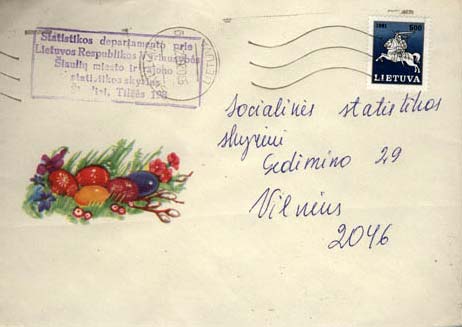 Statistikos departamento prie
Lietuvos Respublikos Vyriausybės
Šiaulių miesto ir rajono
statistikos skyrius
Tilžės
1991 500
LIETUVA
Socialinės statistikos
skyriui
Gedimino 29
Vilnius
2046